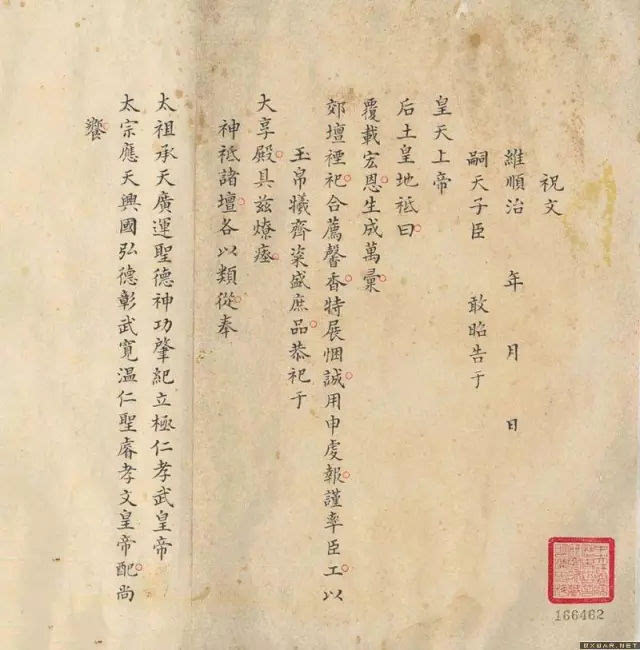 祝文
維順治 年 月 日
嗣天子臣 敢昭告于
皇天上帝
后土皇地祇曰
覆載宏恩生成萬彙
郊壇禋祀合薦馨香特展悃誠用申虔報謹率臣工以
玉帛犧齊粢盛庶品恭祀于
大享殿具玆燎瘞
神祇諸壇各以類從奉
太祖承天廣運聖德神功肇紀立極仁孝武皇帝
太宗應天興國弘德彰武寬溫仁聖睿孝文皇帝配尚
饗
166462
BXWAR.NET